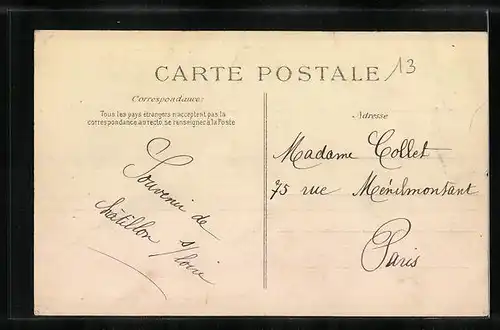 CARTE POSTALE
13
Correspondance:
Tous les pays étrangers n'acceptent pas la
correspondance au recto, se renseigner à la Poste
Souvenir de
Châtillon s/loire
Adresse
Madame Collet
75 rue Ménilmontant
Paris